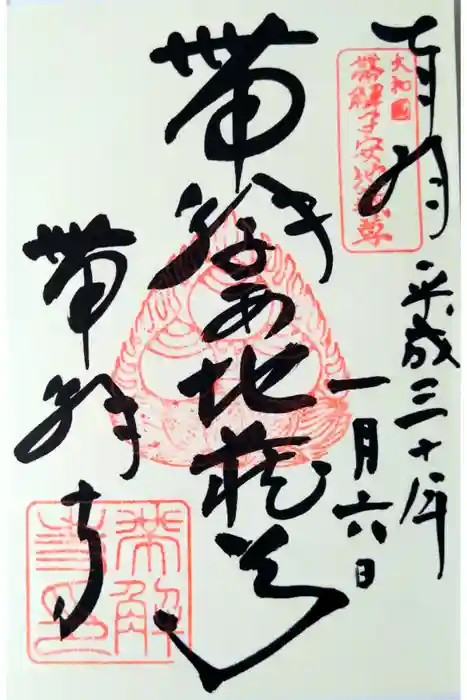 奉拝
大和國
帯解子安地蔵尊
平成三十年
一月六日
帯解子安地蔵尊
帯解寺
帯解
寺印